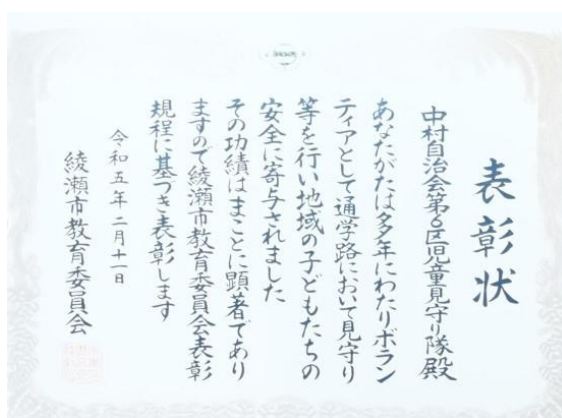 表彰状
中村自治会第6区児童見守り隊殿
あなたがたは多年にわたりボラン
ティアとして通学路において見守り
等を行い地域の子どもたちの
安全に寄与されました
その功績はまことに顕著であり
ますので綾瀬市教育委員会表彰
規程に基づき表彰します
令和五年二月十一日
綾瀬市教育委員会